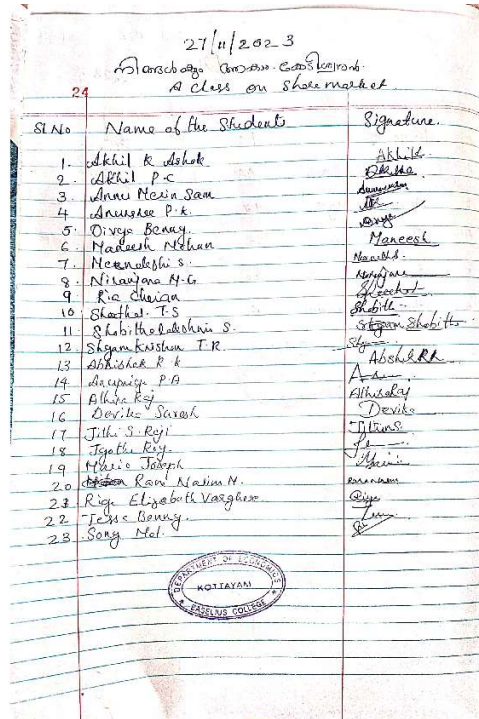 27/11/2023
നിങ്ങൾക്കും ആകാം കോടീശ്വരൻ
24 A class on Share market.
Sl No Name of the Students Signature.
1. Akhil R Ashok Akhil
2. Akhil P.C
3. Annu Merin Sam
4 Anusree P.k.
5. Divya Benny. Divya
6. Maneesh Mohan Maneesh
7. Meenakshi S.
8. Niranjana M.G Niranjana
9 Ria Cherian
10. Sheethal T.S Sheethal
11. Shobithalakshmi S. Shobitha
12 Shyamkrishna T.R.
13 Abhishek R k
14 Anupriya P.A
15 Athira Raj Athira Raj
16 Devika Suresh Devika
17 Jithi S. Reji
18 Jyothi Roy.
19 Maria Joseph
20 Rani Nasim N.
21 Riya Elizabeth Varghese Riya
22 Jesse Benny.
23. Song Mol.
DEPARTMENT OF ECONOMICS
KOTTAYAM
BASELIUS COLLEGE